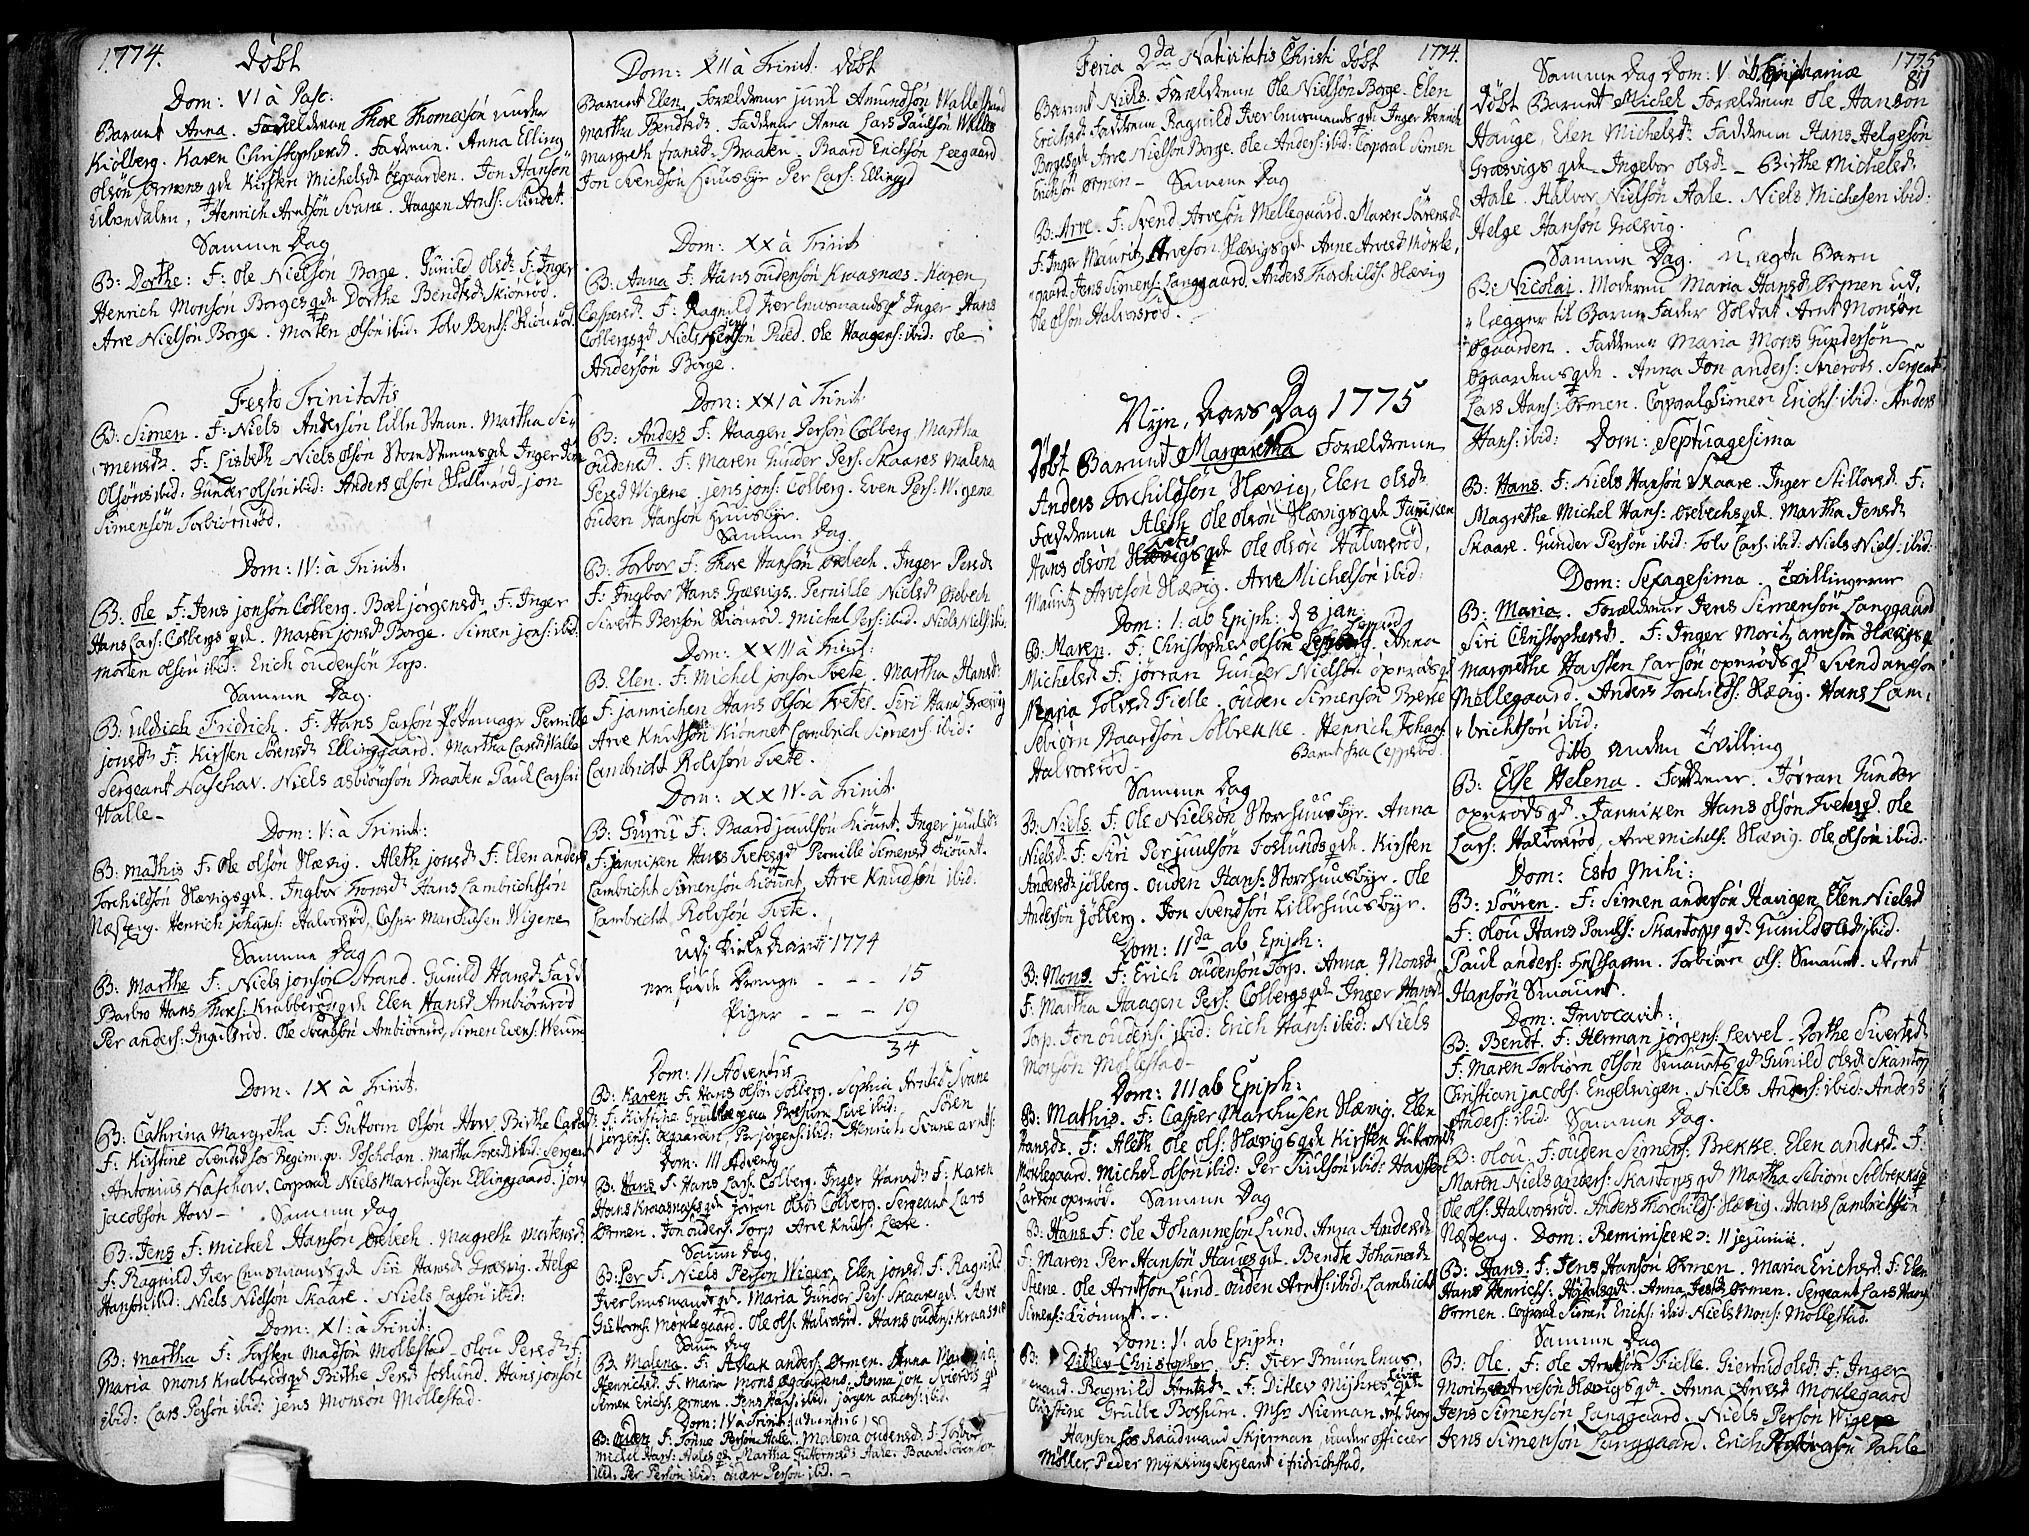 1774. Døbt
Dom: VI à Pasc:
Barnet Anna. Forældrene Thore Thomesøn under
Kiølberg. Karen Christophersd. Faddrene. Anna Elling
Olsøn Ormens qde Kirsten Michelsdr Øgaarden. Jon Hansøn
Ulvedalen, Henrich Arntsøn Svane. Haagen Arnts: Sundet.
Samme Dag
B: Dorthe: F: Ole Nielsøn Borge. Gunild Olsdr F: Inger
Henrich Monsøn Borges qde Dorthe Bendtsd Skiönröd.
Arve Nielsøn Borge. Morten Olsøn ibid: Tolv Bents: Skiönröd.
Festo Trinitatis
B: Simen. F: Niels Andersøn Lille Steun. Martha Si-
mensdr. F: Lisbeth Niels Olsøn Store Steunes qde Inger
Olsøns ibid: Gunder Olsøn ibid: Anders Olsøn Skillerød Jon
Simensøn Torbiørnrød.
Dom: IV: à Trinit.
B: Ole F: Jens Jonsøn Colberg. Boel Jørgensdr. F: Inger
Hans Lars: Colbergs qde. Maren Jonsdr Borge. Simen Jons: ibid:
Morten Olsøn ibid: Erich Oudensøn Torp.
Samme Dag.
B: Uldrich Fridrich. F: Hans Larsøn Pottemager Pernille
Jonsdr F: Kirsten Sørensdr Ellinggaard. Martha Larsdr Walle
Sergeant Naschov. Niels Asbiörnsøn Braaten Paul Larsøn
Walle -
Dom: V: à Trinit:
B: Mathis F: Ole Olsøn Slævig. Aleth Jonsdr F: Elen Anders
Torchildsøn Slævigs qde. Ingbor Tronsdr Hans Lambrichtsøn
Næsteng. Henrich Johans: Halvorsrød, Casper Marchusen Wigene
Samme Dag
B: Marthe F: Niels Jonsøn Strand. Gunild Hansdr. Fadd
Barbro Hans Thors: Krabberöds qde Elen Hansd. Ambiörnröd
Per Anders: Ingulsröd. Ole Svendsøn Ambiörnröd, Simen Evens: Weum
Dom: IX à Trinit.
B: Cathrina Margretha F: Guttorm Olsøn How Birthe Carls
F: Kirstine Svendsd hos Regim: qv. Poscholan. Martha Toresdr ibid: Sergeant
Antonius Naschow. Corporal Niels Marchusen Ellinggaard. Jörg
Jacobsøn How - Samme Dag
B: Jens F: Michel Hansøn Ørebech. Magreth Mortensdr
F: Ragnild Iver Lensmands qde Siri Hansdr Græsvig. Helge
Hansøn ibid: Niels Nielsøn Skaare. Niels Larsøn ibid:
Dom: XI: à Trinit:
B: Martha F: Torsten Madsøn Mollestad. Olou Persdr. F:
Maria Mons Krabberöds qde Birthe Persd Foslund. Hans Jonsøn
ibid: Lars Persøn ibid: Jens Monsøn Mollestad.
Dom: XII à Trinit. Døbt
Barnet Elen. Forældrene Juul Amundsøn Wallestrand
Martha Bendtsdr. Faddrene Anna Lars Paulsøn Walles
Margreth Frantzdr. Braaten. Baard Erichsøn Leegaard
Jon Svendsøn Huusbye Per Lars: Ellinggd
Dom: XX à Trinit
B: Anna F: Hans Oudensøn Kraasnæs. Karen
Caspersd. F: Ragnild Iver Lensmands qd Inger Hans
Colbergs qd Niels Jensøn Rød. Ole Haagens: ibid: Ole
Andersøn Borge.
Dom: XXI à Trinit.
B: Anders F: Haagen Persøn Colberg. Martha
Oudensd. F: Maren Gunder Pers: Skaares Malena
Persd Wigene. Jens Jons: Colberg. Even Pers: Wigene
Ouden Hansøn Huusbye.
Samme Dag.
B: Torbor F: Thore Hansøn Ørebech. Inger Persdr
F: Ingbor Hans Græsvigs. Pernille Nielsdr Ørebech
Sivert Bensøn Skiönröd. Michel Pers: ibid. Niels Niels: ibid:
Dom: XXIII à Trinit:
B. Elen. F: Michel Jonsøn Tvete. Martha Hansdr.
F: Jannichen Hans Olsøn Tvetes. Siri Hansd Græsvig
Arve Knutsøn Kiönnet Lambrich Simens: ibid:
Lambricht Rolvsøn Tvete.
Dom: XXIV. à Trinit.
B: Guru F: Baard Juulsøn Kiönnt. Inger Juulsdr:
F: Janniken Hans Tvetes qd Pernille Simensd Kiönnt.
Lambricht Simensøn Kiönnt. Arve Knudsøn ibid.
Lambricht Rolvsøn Tvete.
Udi Kirke Aaret 1774
ere fødde Drenge - - - 15
Piger - - - 19
34
Dom: II Adventus
B: Karen F: Hans Olsøn Solberg. Sophia Arntsd Svane
F: Kirstine Grubbe Bossum Live ibid: Søren
Jørgens: Øgaarden, Per Jørgens: ibid: Henrich Svane Arnts:
Dom: III Advent
B: Hans F: Hans Lars: Colberg. Inger Hansdr: F: Karen
Hans Kraasnæs qde Jöran Olsdr Colberg. Sergeant Lars
Ørmen. Jon Ouders: Torp Arve Knuts: Leete.
Samme Dag.
B: Per F: Niels Persøn Wiger. Elen Jonsd. F: Ragnild
Iver Lensmands qd. Maria Gunder Pers: Skaare qd. Arve
Guttorms: Mörlegaard. Ole Ols: Halvorsrød. Hans Ouders: Kraasnæs
Samme Dag
B: Malena. F: Aslak Anders: Ørmen. Anna Maria
Henrichsd. F: Maria Mons Øgaardens. Anna Jon Sneröds qd
Simen Erichs: Ørmen. Jens Hans: ibid: Jörgen Anders: ibid:
Dom: IV à Adventus
B: Ouden F: Tönne Persøn Aale. Malena Oudensdr. F: Torbor
Michel Hans: Aales qd Martha Guttormsdr Aale. Baard Sörensøn
ibid: Per Persøn ibid: Ouden Persøn ibid. -
Feria 2da Nativitatis Christi Døbt 1774.
Barnet Niels. Forældrene Ole Nielsøn Borge. Elen
Erichsd. Faddrene Ragnild Iver Lensmands qde Inger Henrich
Borges qde Arve Nielsøn Borge. Ole Anders: ibid: Corporal Simen
Erichsøn Ørmen - Samme Dag
B: Arve. F: Svend Arvesøn Mellegaard. Maren Sörensdr
F: Inger Mauritz Arvesøn Slævigs qd Anne Arvesd Mörle,
gaard. Jens Simens: Langgaard. Anders Thorchilds: Slævig
Ole Olsøn Halvorsröd.
Nye, Aars Dag 1775
Døbt Barnet Margaretha Forældrene
Anders Torchildsøn Slævig, Elen Olsdr
Faddrene Aleth Ole Olsøn Slævigs qde Janniken
Hans Olsøn Tvetes qde Ole Olsøn Halvorsröd,
Mauritz Arvesøn Slævig. Arve Michelsøn ibid:
Dom: I: ab Epiph: d 8 Jan:
B: Maren. F: Christopher Olsøn Anna
Michelsd F: Jörran Gunder Nielsøn Openröds qd
Maria Tolvsd Fielle. Ouden Simensøn Brekke
Sebiørn Baardsøn Solbrekke. Henrich Johans:
Halvorsröd. Barnet fra Lepperöd
Samme Dag
B: Niels. F: Ole Nielsøn Storehuusbye. Anna
Nielsd F: Siri Per Juulsøn Foslunds qde. Kirsten
Andersdr Jölberg. Ouden Hans: Storehuusbye. Ole
Andersøn Jölberg. Jon Svendsøn Lillehuusbye.
Dom: IIda ab Epiph:
B: Mons. F: Erich Oudensøn Torp. Anna Monsdr
F: Martha Haagen Pers: Colbergs qde Inger Hansd
Torp. Jon Oudens: ibid: Erich Hans: ibid: Niels
Monsøn Mollestad -
Dom: III ab Epiph:
B: Mathis. F: Casper Marchusen Slævig. Elen
Hansdr. F: Aleth Ole Ols: Slævigs qde Kirsten Guttormsdr
Mörlegaard. Michel Olsøn ibid: Per Siulsøn ibid: Havsten
Larsøn Openröd. Samme Dag
B: Hans F: Ole Johannesøn Lund. Anna Andersdr
F: Maren Per Hansøn Haues qd. Bendte Johannesdr
Steene. Ole Arntsøn Lund. Ouden Arnts: ibid: Lambricht
Simens: Kiönnet.
Dom: V. ab Epiph:
B: Ditlev Christopher. F: Iver Bruun Lens,
mand. Ragnild Arntsdr - F: Ditlev Mejhers qde
Christine Grubbe Bossum. Msr Nieman Mr Georg
Hansen hos Raadmand Skjerman, under officier
Møller. Peder Mykking Sergeant i Fridrichstad.
1775
81
Samme Dag Dom: V ab Epiphaniæ
Døbt Barnet Michel Forældrene Ole Hansøn
Hauge, Elen Michelsdr Faddrene Hans Helgesøn
Græsvigs qde Ingebor Olsdr - Birthe Michelsdr
Aale. Halvor Nielsøn Aale. Niels Michelsen ibid:
Helge Hansøn Græsvig.
Samme Dag. Uægte Barn
B: Nicolai. Moderen Maria Hansdr Ørmen Ud,
lægger til Barne Fader Soldat Arnt Monsøn
Øgaarden. Faddrene Maria Mons Gundersøn
Øgaardens qde. Anna Jon Anders: Sneröds. Sergeant
Lars Hans: Ørmen. Corporal Simen Erichs: ibid: Anders
Hans: ibid: Dom: Septuagesima
B: Hans. F: Niels Hansøn Skaare. Inger Tillovsd. F:
Magrethe Michel Hans: Ørebechs qde. Martha Jensdr
Skaare. Gunder Persøn ibid: Tolv Lars: ibid: Niels Niels: ibid:
Dom: Sexagesima. Tvillingerne
B: Maria. Forældrene Jens Simensøn Langgaard
Siri Christophersd. F: Inger Moritz Arvesøn Slævigs
Margrethe Havsten Larsøn Openröds qd Svend Arvesøn
Mellegaard. Anders Torchilds: Slævig. Hans Lam,
brichtsøn ibid:
Dito anden Tvilling
B: Else Helena. Faddrene. Jörran Gunder
Openröds qd. Janniken Hans Olsøn Tvetes qd. Ole
Lars: Halvorsröd, Arve Michels: Slævig. Ole Olsøn ibid.
Dom: Esto Mihi:
B: Sövren. F: Simen Andersøn Havigen Elen Nielsd
F: Olou Hans Pauls: Skantorps qde Gunild Olsdr ibid.
Paul Anders: Husthavn. Torbiørn Ols: Smaunt. Arnt
Hansøn Smaunt.
Dom: Invocavit:
B: Bendt. F: Herman Jörgens: Levvel. Dorthe Sivertsdr
F: Maren Torbiörn Olsøn Smaunts qd Gunild Olsdr Skantorp
Christian Jacobs: Engelsvigen. Niels Anders: ibid: Anders
Anders: ibid: Samme Dag.
B: Olou. F: Ouden Simens: Brekke. Elen Andersd F:
Maren Niels Anders: Skantorps qd Martha Sebiörn Solbrekke qd
Ole Ols: Halvorsröd. Anders Thorchilds: Slævig. Hans Lambrichtsøn
Næsteng. Dom: Reminiscere: II Jejunii.
B: Hans. F: Jens Hansøn Ørmen. Maria Erichsd. F: Elen
Hans Henrichs: qd. Anna Jensdr Ørmen. Sergeant Lars Hans:
Ørmen. Corporal Simen Erichs: ibid Niels Mons: Mollestad.
Samme Dag
B: Ole. F: Ole Arntsøn Fielle. Giertrud Olsdr F: Inger
Moritz Arvesøn Slævigs qde. Anna Arvesd Mörlegaard
Jens Simensøn Langgaard. Niels Persøn Wigene
Jens Simensøn Langgaard. Erich Dahle